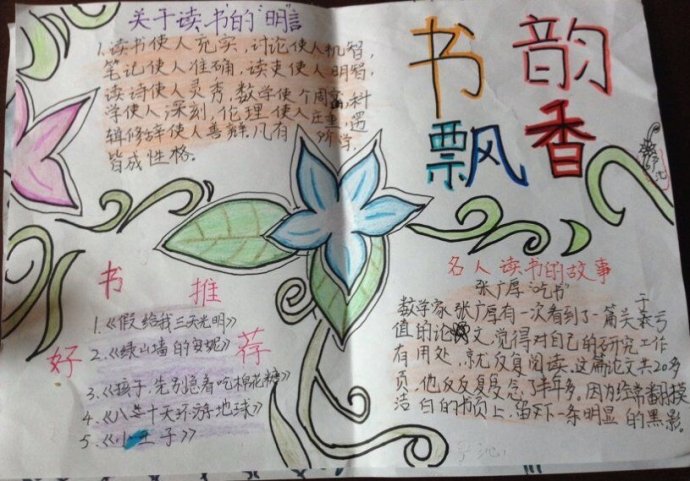 关于读书的"明"言
1.读书使人充实，讨论使人机智，
笔记使人准确，读史使人明智，
读诗使人灵秀，数学使个周密，科
学使人深刻，伦理使人庄重，逻
辑修辞使人善辩，凡有所学，
皆成性格。
书韵
飘香
好书推荐
1.《假给我三天光明》
2.《绿山墙的安妮》
3.《孩子，先别急着吃棉花糖》
4.《八十天环游地球》
5.《小王子》
名人读书的故事
张广厚"吃书"
数学家张广厚有一次看到了一篇关于亏
值的论文，觉得对自己的研究工作
有用处，就反复阅读。这篇论文共20多
页，他反反复复念了半年多。因为经常翻摸
洁白的书页上，留下一条明显的黑影。